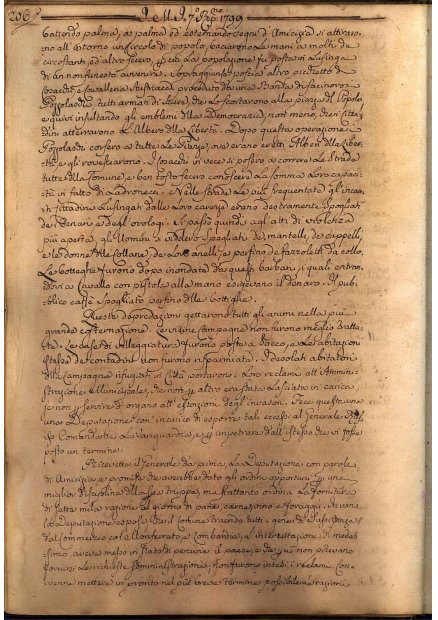 256
battendo palma, a palma ed esternando segni d'Amicizia si attiravano all'intorno un circolo di popolo, baciarono le mani a molti de
circostanti ed altro fecero, per cui la popolazione fu posta in lusinga
di un non funesto avvenire. Sopraggiunse poscia altro picchetto di
Cosacchi, e Cavalleria Austriaca preceduto da una Banda di facinorosi
tutti armati di scure, che lo scortavano alla piazza del Popolo,
e quivi insultando gli emblemi della Democrazia, non meno, che i Cittadini
atterrarono l'Albero della Libertà. Dopo questa operazione
corsero a tutte le Piazze, ove erano eretti Alberi della Libertà
e gli rovesciarono. I Cosacchi in vece si posero a correre le strade
tutte della Comune, e ben tosto fecero conoscere la somma loro capacità
in fatto di ladronecci. Nelle strade le più frequentate gl'incauti
Cittadini lusingati dalle loro carezze erano destramente spogliati
dei denari e degli orologi. Si passò quindi agli atti di violenza
più aperta, gli Uomini si videro spogliati dei mantelli, de cappelli,
e le donne delle collane, de loro anelli, e perfino de fazzoletti da collo.
Le botteghe furono dopo inondate da questi barbari, i quali entrandovi
a Cavallo con pistola alla mano esigevano il denaro. Il pubblico
caffè spogliato perfino delle bottiglie.
Queste depredazioni gettarono tutti gli animi nella più
grande costernazione. Le vicine campagne non furono meglio trattate.
Le case di villeggiatura furono poste a sacco, e le abitazioni
stesse de contadini non furono risparmiate. I desolati abitatori
della Campagna rifugiati in Città portarono i loro reclami all'Amministrazione
Municipale, che non per altro era stata lasciata in carica
se non per servire di organo all'estorzioni degli invasori. Fece questa
una Deputazione con incarico di esporre tali eccessi al Generale
Comandante la Vanguardia, e per impetrare dall'stesso che si fosse
posto un termine.
Ricevette il Generale da prima la Deputazione con parole
di Amicizia e promise che avrebbe dato gli ordini opportuni per una
miglior disciplina della sua truppa, ma frattanto ordinò la fornitura
di sette mila razioni al giorno di pane, carne, vino e foraggi. Invano
la Deputazione espose che il Comune traendo tutti i generi di sussistenza
dal Commercio col Monferrato, e Lombardia, l'intercettazione di medesimo
aveva messo in istato di penuria il paese, e che più non potevano
fornirsi le richieste somministrazioni. Non furono intesi i reclami. Convenne
mettere in pronto nel più breve termine possibile le razioni.